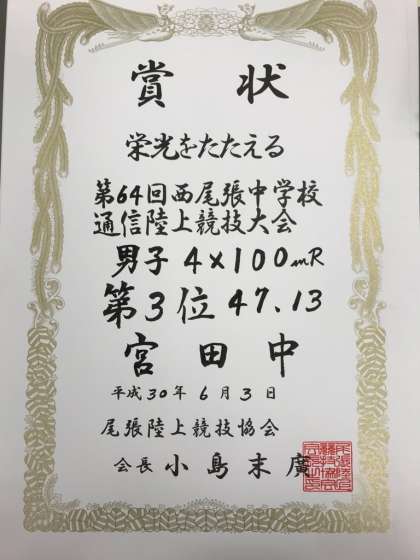 賞状
栄光をたたえる
第64回西尾張中学校
通信陸上競技大会
男子 4×100mR
第3位 47.13
宮田中
平成30年 6月 3日
尾張陸上競技協会
会長 小島末廣